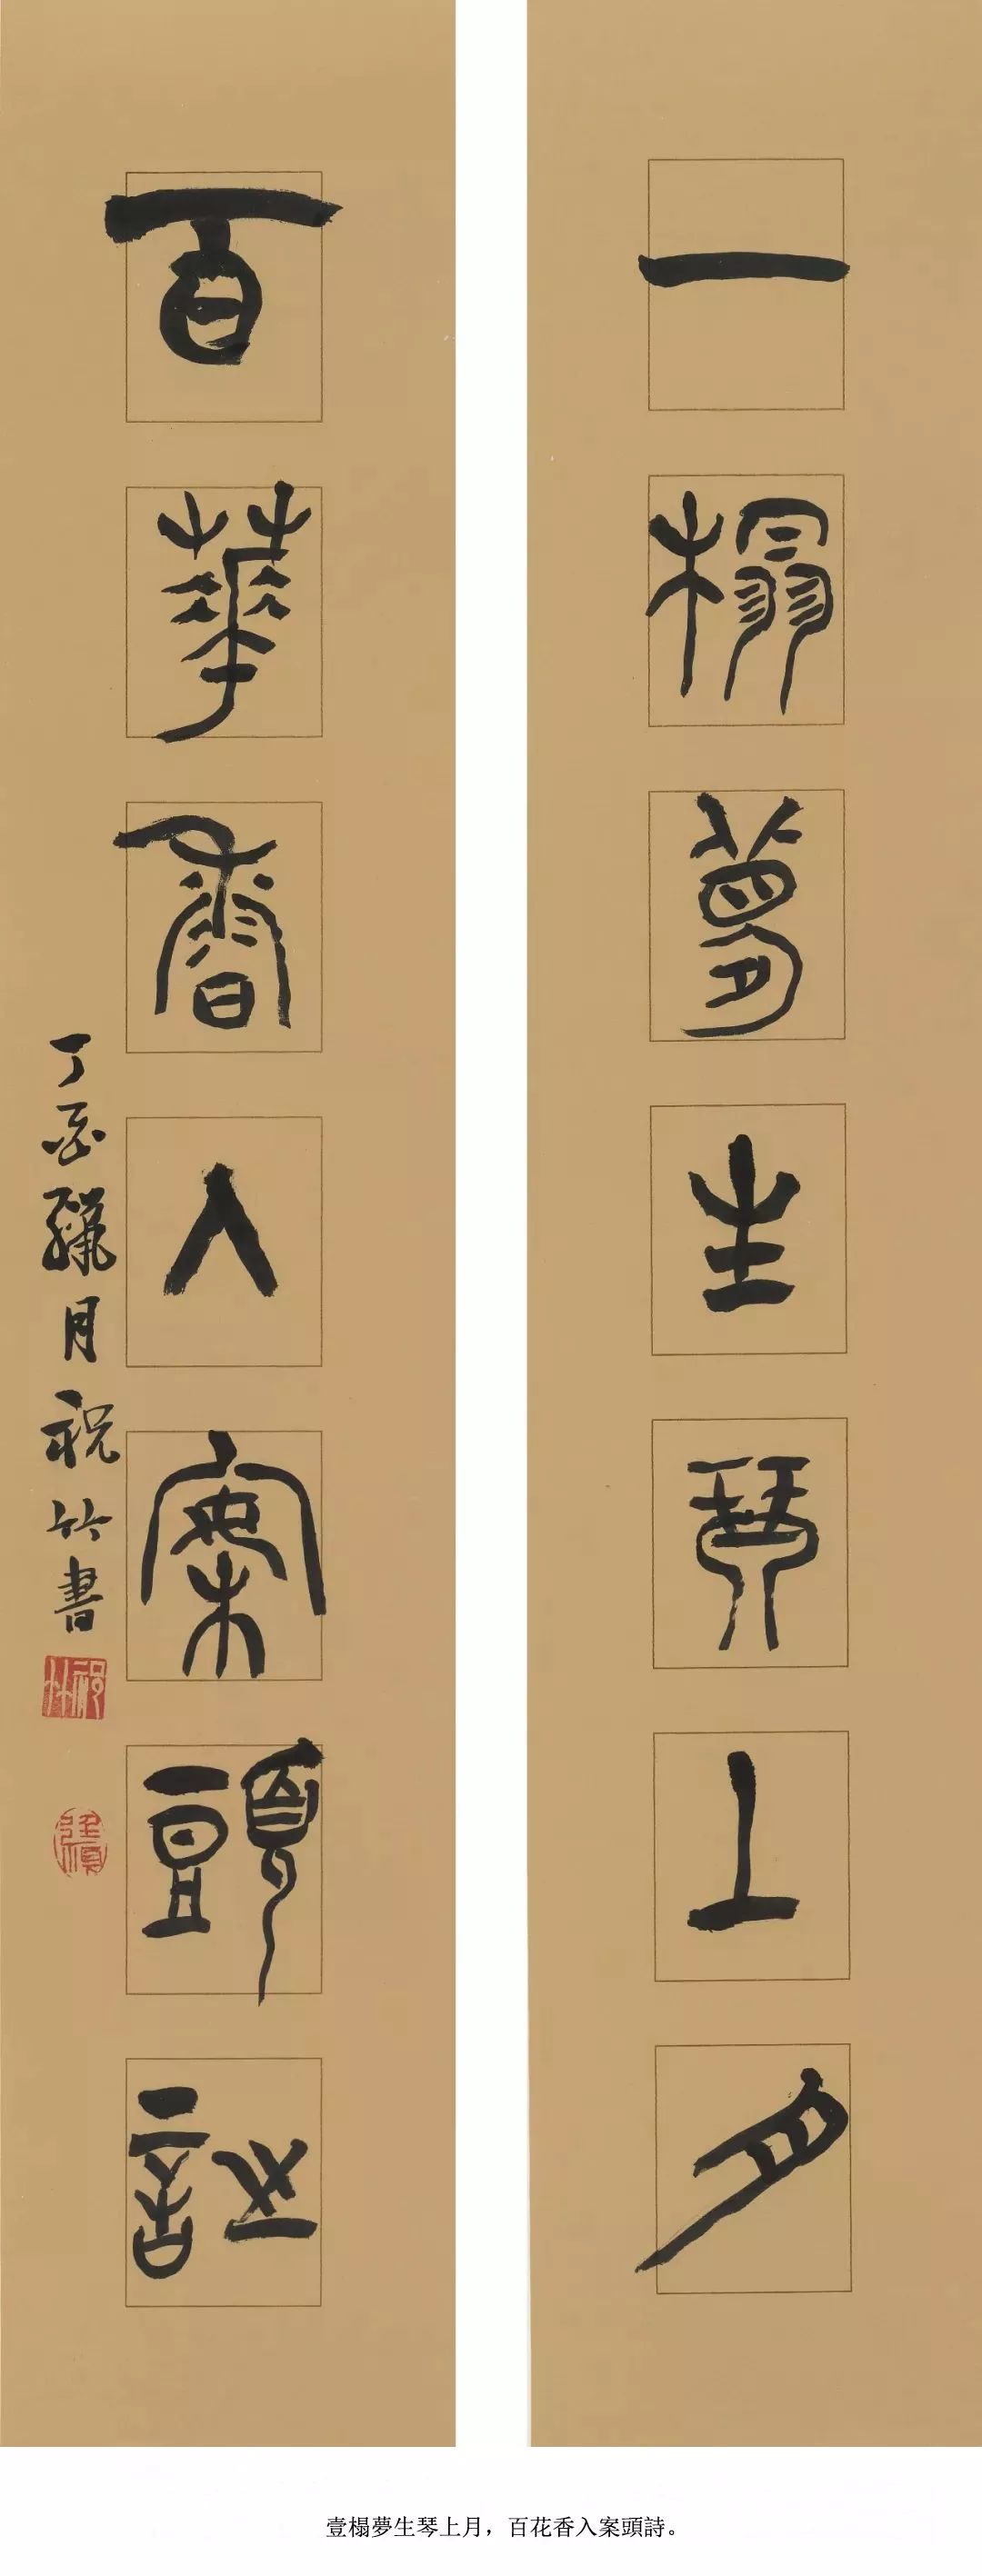 一榻夢生琴上月
百華香入案頭詩
丁酉臘月祝竹書
祝竹
壹榻夢生琴上月，百花香入案頭詩。